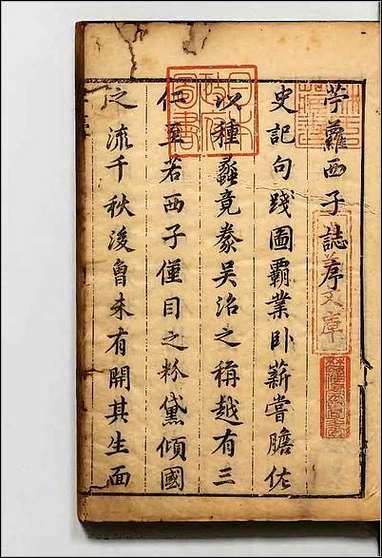 苧蘿西子誌序
史記句踐圖霸業卧薪嘗膽佐
以種蠡竟豢吳治之稱越有三
仁至若西子僅目之粉黛傾國
之流千秋後魯未有開其生面
文庫
日本
政府
圖書